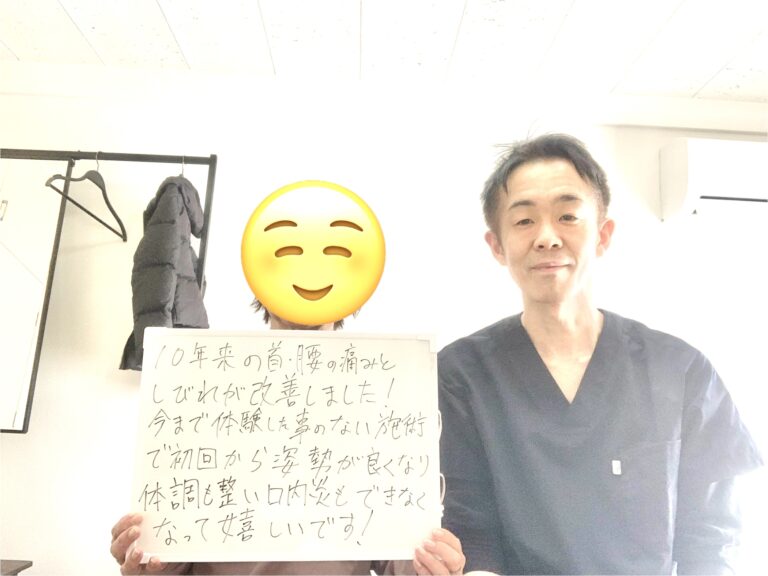 10年来の首・腰の痛みと
しびれが改善しました!
今まで体験した事のない施術
で初回から姿勢が良くなり
体調も整い口内炎もできなく
なって嬉しいです!